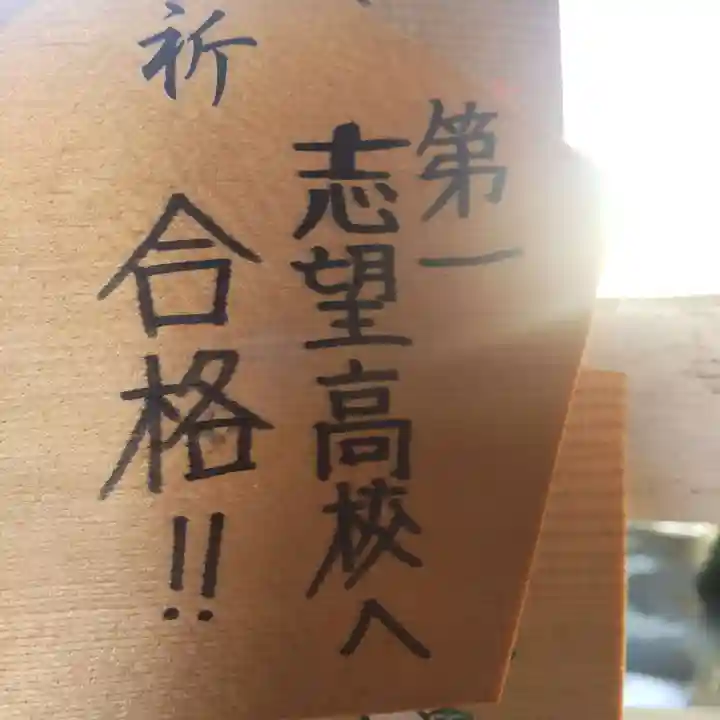 第一
志望高校へ
祈
合格!!